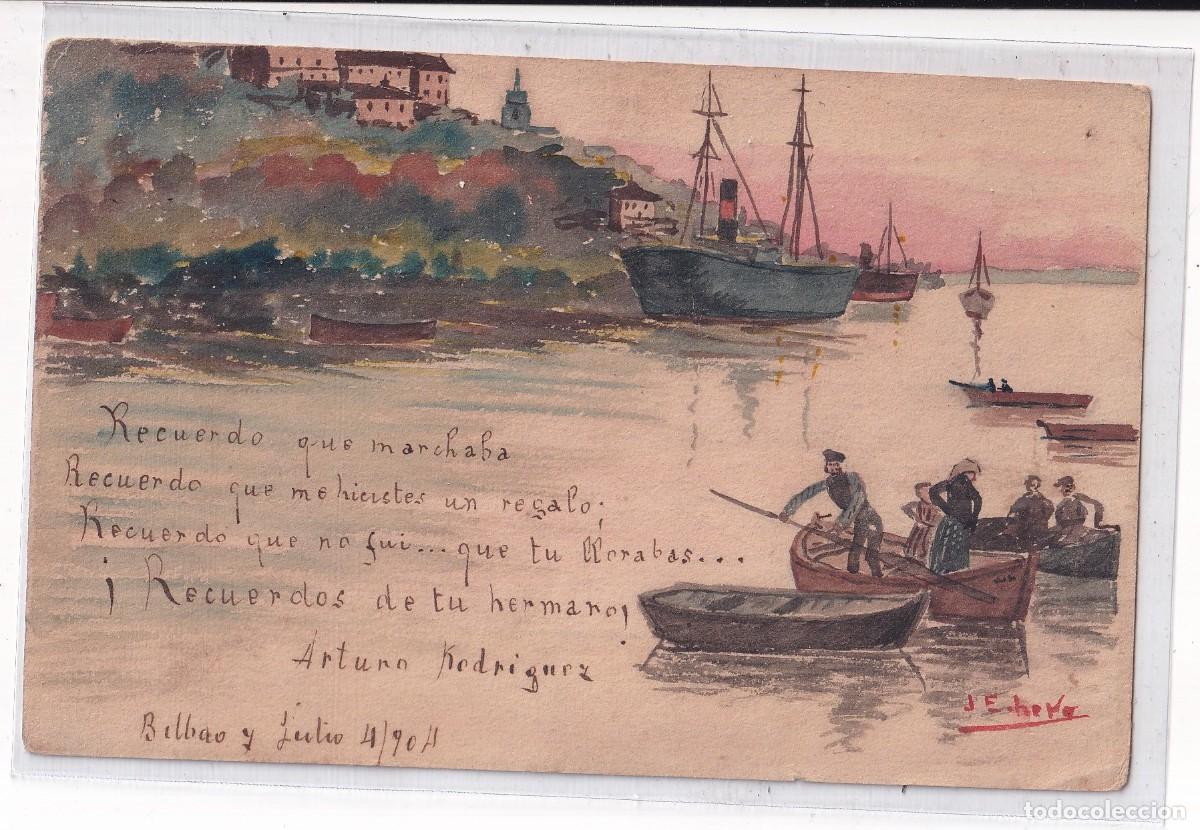 Recuerdo que marchaba
Recuerdo que me hicistes un regalo;
Recuerdo que no fui... que tu llorabas...
¡Recuerdos de tu hermano!
Arturo Rodriguez
Bilbao y Julio 4/904
todocoleccion